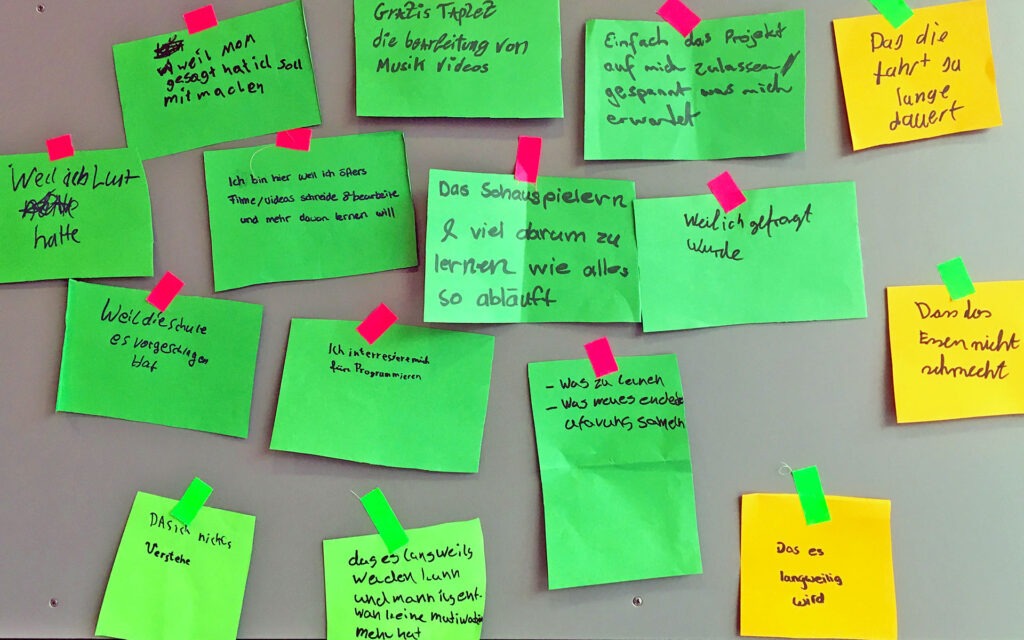 weil Mom
gesagt hat ich soll
mitmachen
Gratis TAPLET
die bearbeitung von
Musik Videos
Einfach das Projekt
auf mich zulassen/
gespannt was mich
erwartet
Das die
fahrt so
lange
dauert
Weil ich Lust
hatte
Ich bin hier weil ich öfters
Filme/videos schneide & bearbeite
und mehr davon lernen will
Das Schauspielern
& viel darum zu
lernen wie alles
so abläuft
Weil ich gefragt
wurde
Weil die schule
es vorgeschlagen
hat
Ich interresiere mich
fürs Programmieren
Dass das
Essen nicht
schmeckt
- Was zu lernen
- Was neues
sameln
DAS ich nichts
Verstehe
das es langweils
werden kann
und mann
wan keine mutiwation
mehr hat
Das es
langweilig
wird